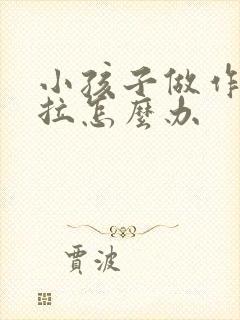 小孩子做作
拉怎麼办
賈波